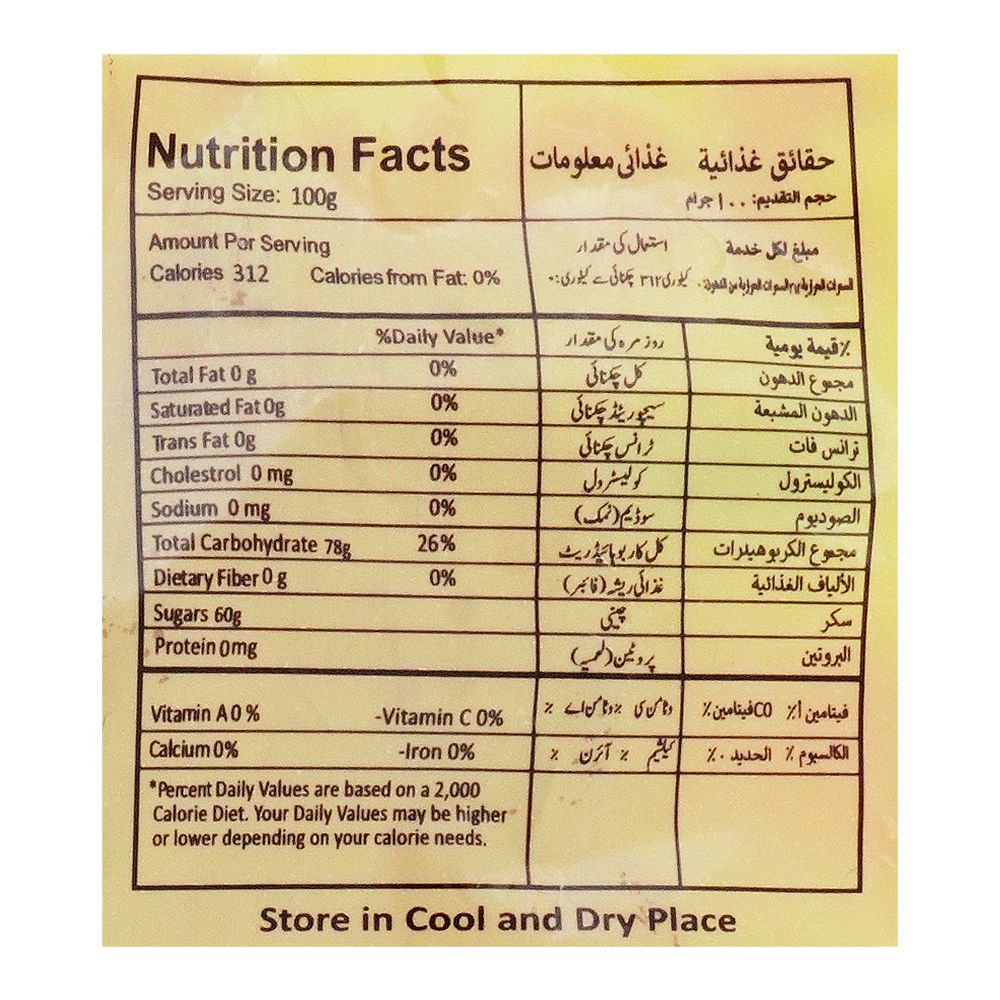 Nutrition Facts غذائی معلومات حقائق غذائية
Serving Size: 100g حجم التقديم: ١٠٠ جرام
Amount Per Serving استعمال کی مقدار مبلغ لكل خدمة
Calories 312 Calories from Fat: 0% کیلوری ۳۱۲ چکنائی سے کیلوری: ۰
%Daily Value* روز مرہ کی مقدار ٪قيمة يومية
Total Fat 0 g 0% کل چکنائی مجموع الدهون
Saturated Fat 0g 0% سیچوریٹڈ چکنائی الدهون المشبعة
Trans Fat 0g 0% ٹرانس چکنائی ترانس فات
Cholestrol 0 mg 0% کولیسٹرول الكوليسترول
Sodium 0 mg 0% سوڈیم (نمک) الصوديوم
Total Carbohydrate 78g 26% کل کاربوہائیڈریٹ مجموع الكربوهيدرات
Dietary Fiber 0 g 0% غذائی ریشہ (فائبر) الألياف الغذائية
Sugars 60g چینی سكر
Protein 0mg پروٹین (لحمیہ) البروتين
Vitamin A 0 % -Vitamin C 0% وٹامن سی ٪ وٹامن اے ٪ فيتامين أ٪ C0فيتامين٪
Calcium 0% -Iron 0% کیلشیم ٪ آئرن ٪ الكالسيوم ٪ الحديد ٠٪
*Percent Daily Values are based on a 2,000
Calorie Diet. Your Daily Values may be higher
or lower depending on your calorie needs.
Store in Cool and Dry Place